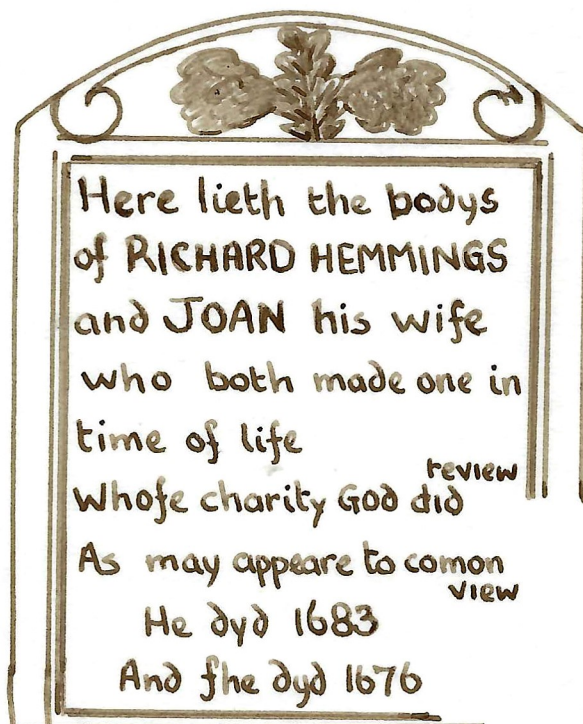 Here lieth the bodys
of RICHARD HEMMINGS
and JOAN his wife
who both made one in
time of life
Whoſe charity God did review
As may appeare to comon view
He dyd 1683
And ſhe dyd 1676